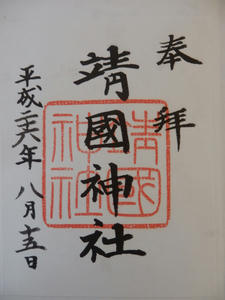 奉拝
靖國神社
平成二六年八月十五日
靖國神社